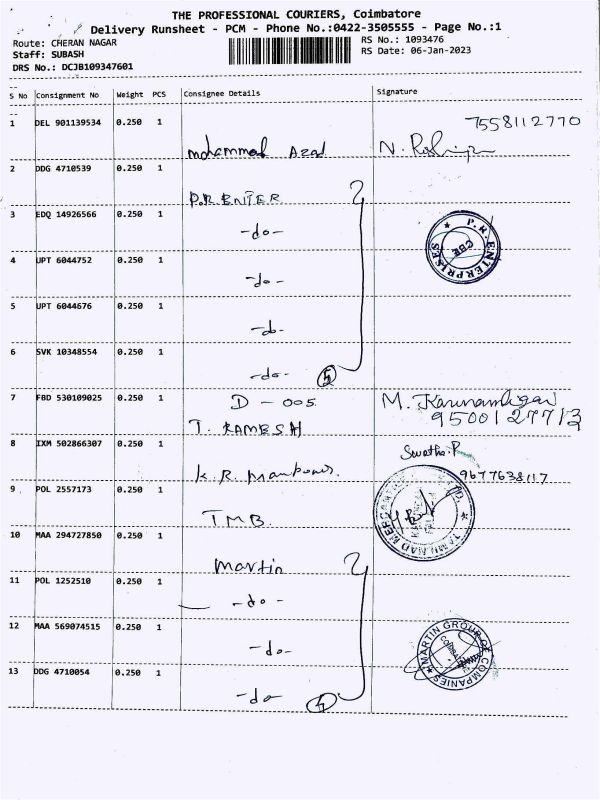 THE PROFESSIONAL COURIERS, Coimbatore
Delivery Runsheet - PCM - Phone No.:0422-3505555 - Page No.:1
Route: CHERAN NAGAR
RS No.: 1093476
Staff: SUBASH
RS Date: 06-Jan-2023
DRS No.: DCJB109347601
S No Consignment No Weight PCS Consignee Details Signature
1 DEL 901139534 0.250 1
7558112770
Mohammad Azad N.
2 DDG 4710539 0.250 1
P.R. ENTER
3 EDQ 14926566 0.250 1
-do-
P.R. ENTERPRISES
CBE
4 UPT 6044752 0.250 1
-do-
5 UPT 6044676 0.250 1
-do-
6 SVK 10348554 0.250 1
-do- 5
7 FBD 530109025 0.250 1
D - 005
M.
9500127713
T. RAMESH
8 IXM 502866307 0.250 1
Swatha.P
9677638117
K.R.
9 POL 2557173 0.250 1
TMB
TAMILNAD MERCANTILE
10 MAA 294727850 0.250 1
Martin
11 POL 1252510 0.250 1
-do-
12 MAA 569074515 0.250 1
-do-
MARTIN GROUP OF COMPANIES
13 DDG 4710054 0.250 1
-do- 4